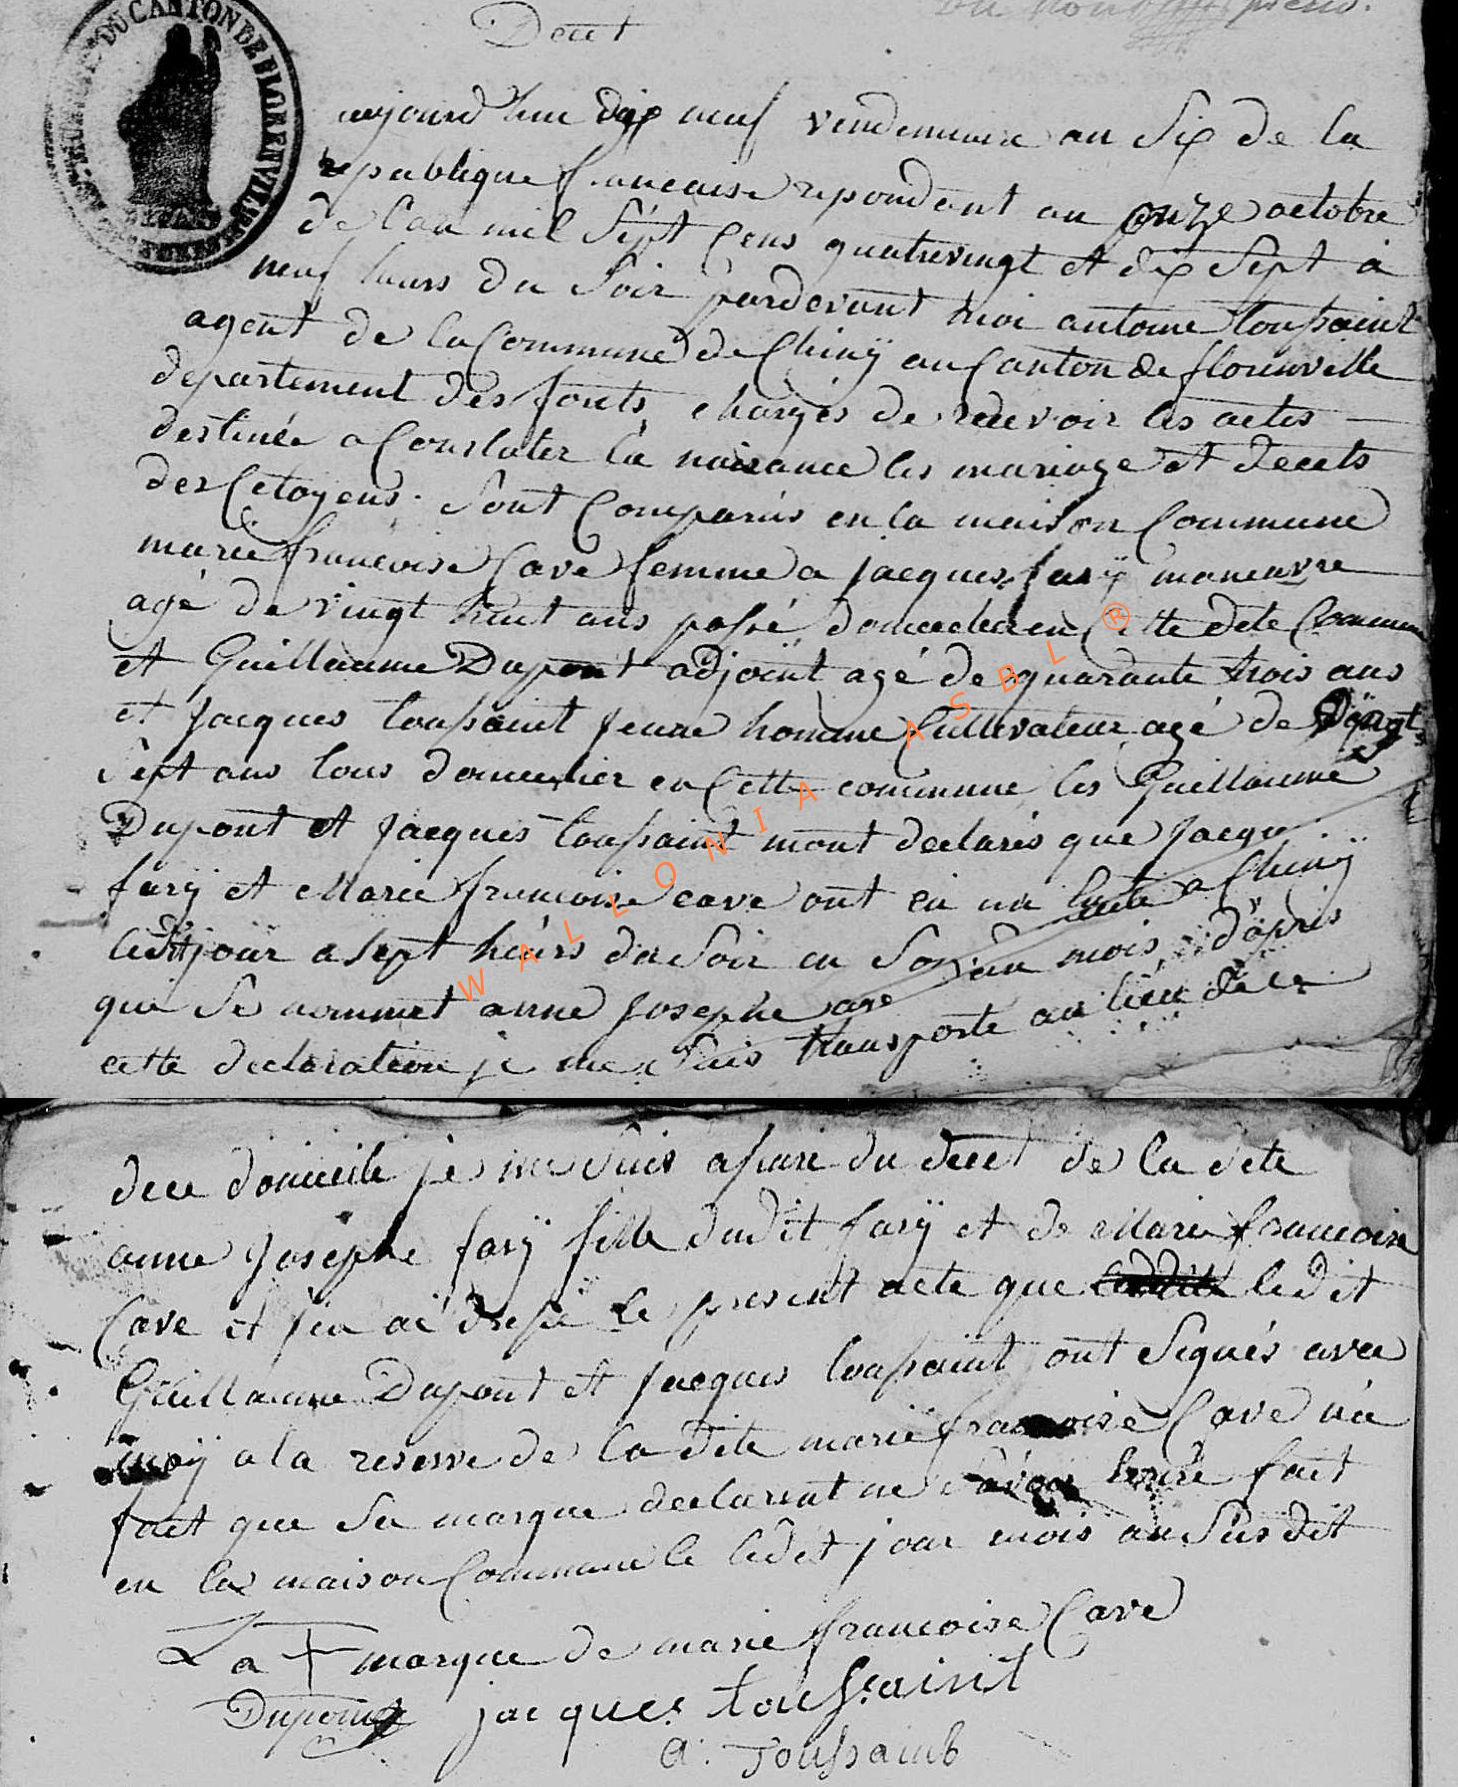 Decet
aujourdhui dix neuf vendemiaire an Six de la
republique francaise repondant au onze octobre
de lan mil Sept Cens quatrevingt et dix Sept à
neuf heurs du Soir pardevant moi antoine toussaint
agent de la Commune de Chinÿ au Canton de florenville
departement des forets chargés de recevoir les actes
destinée a Constater la naisance les mariage et decets
des Citoyens. Sont Comparus en la maison Commune
marie francoise Cave femme a jacques farÿ maneuvre
agé de vingt huit ans passé domicilié en Cette dite Commune
et Guillaume Dupont adjoint agé de quarante trois ans
et Jacques toussaint jeune homme Cultivateur agé de vingt
Sept ans tous domicilier en Cette commune, les Guillaume
Dupont et jacques toussaint mont declarés que Jacque
farÿ et Marie francoise cave ont eu un a Chinÿ
ledit jour a sept heurs du Soir en Son un mois d'apris
que Se nommet anne Josephe
cette declaration je me Suis transporte au lieu de ce
dece domicile je me Suis assuré du decet de la dite
anne Josephe farÿ fille dudit farÿ et de Marie francoise
Cave et j'en ai dressé le present acte que ledit
Guillaume Dupont et Jacques toussaint ont Signés avec
moÿ a la reserve de la dite marie francoise Cave n'a
fait que Sa marque declarant ne Savoir fait
en la maison Commune le ledit jour mois an Susdit
La + marque de marie francoise Cave
Dupont jacques toussaint
a: Toussaint
WALLONIA ASBL ®
DU CANTON DE FLORENVILLE